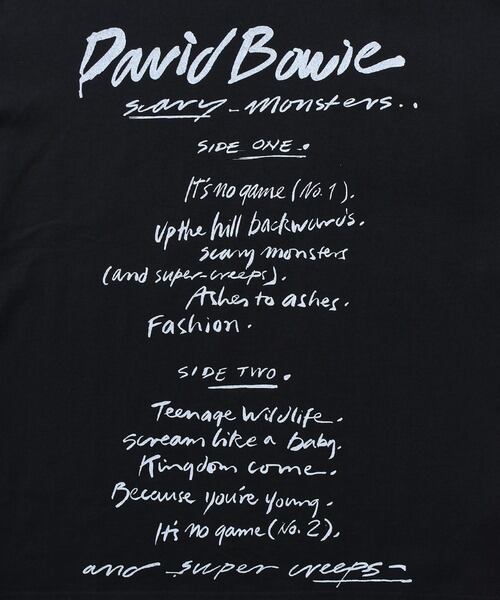 David Bowie
scary - monsters..
SIDE ONE.
It's no game (No. 1).
Up the hill backwards.
scary monsters
(and super-creeps).
Ashes to ashes.
Fashion.
SIDE TWO.
Teenage Wildlife.
scream like a baby.
Kingdom come.
Because you're young.
It's no game (No. 2).
and super creeps-